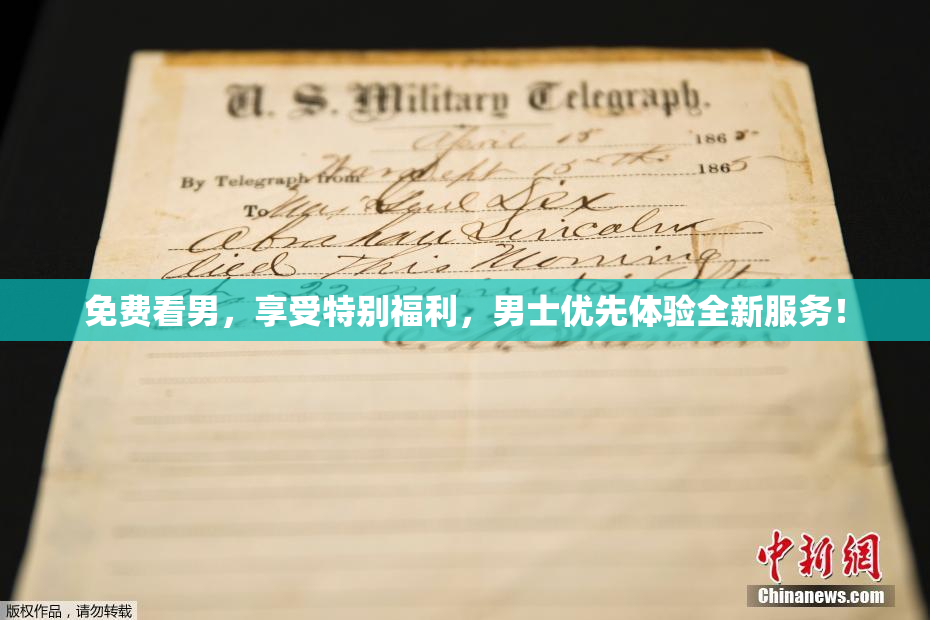 U. S. Military Telegraph.
April 15 1865
By Telegraph from War Dept 15th 1865
To Maj Genl Dix
Abraham Lincoln
died This Morning
免费看男，享受特别福利，男士优先体验全新服务！
中新网
Chinanews.com
版权作品，请勿转载